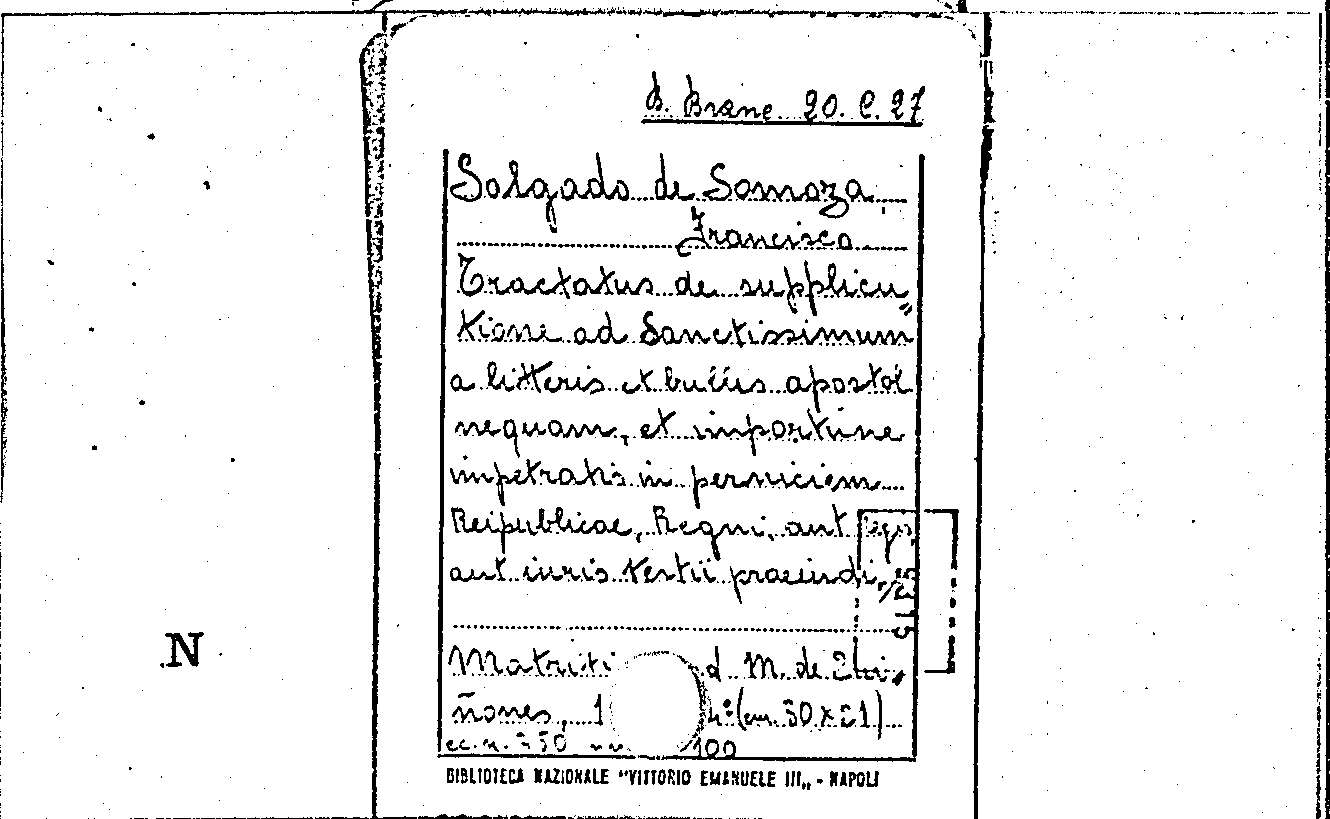 B. Branc. 20. C. 27
Salgado de Somoza
Francisco
Tractatus de supplica„
tione ad Sanctissimum
a litteris et bullis apostol
nequam, et importune
impetratis in perniciem
Reipublicae, Regni, aut regis,
aut iuris tertii praeiudi
Matriti d. M. de
ñones, 1 4º (cm. 30 x 21)
100
BIBLIOTECA NAZIONALE "VITTORIO EMANUELE III„ - NAPOLI
N